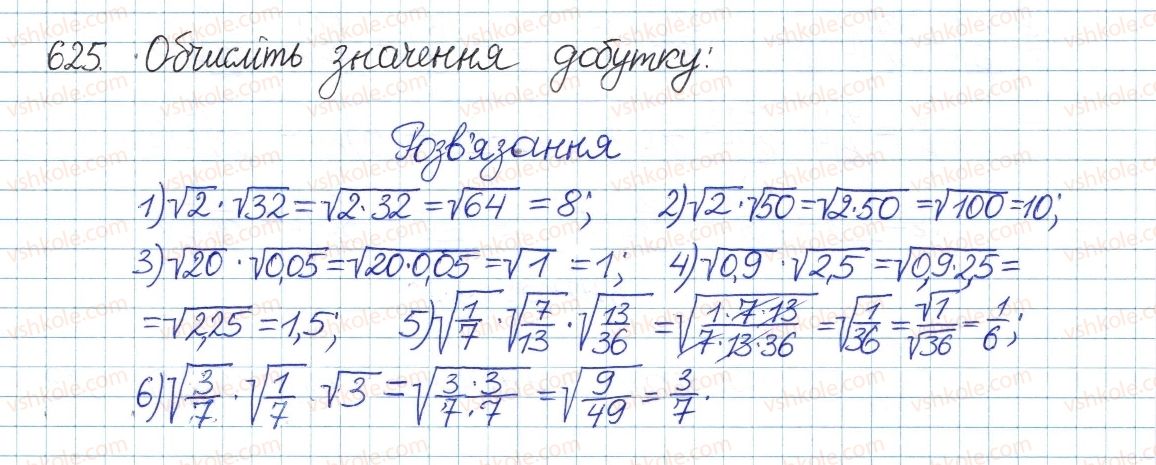 625. Обчисліть значення добутку:
Розв'язання
1) √2 · √32 = √(2·32) = √64 = 8; 2) √2 · √50 = √(2·50) = √100 = 10;
3) √20 · √0,05 = √(20·0,05) = √1 = 1; 4) √0,9 · √2,5 = √(0,9·2,5) =
= √2,25 = 1,5; 5) √(1/7) · √(7/13) · √(13/36) = √((1·7·13)/(7·13·36)) = √(1/36) = √1/√36 = 1/6;
6) √(3/7) · √(1/7) · √3 = √((3·3)/(7·7)) = √(9/49) = 3/7.